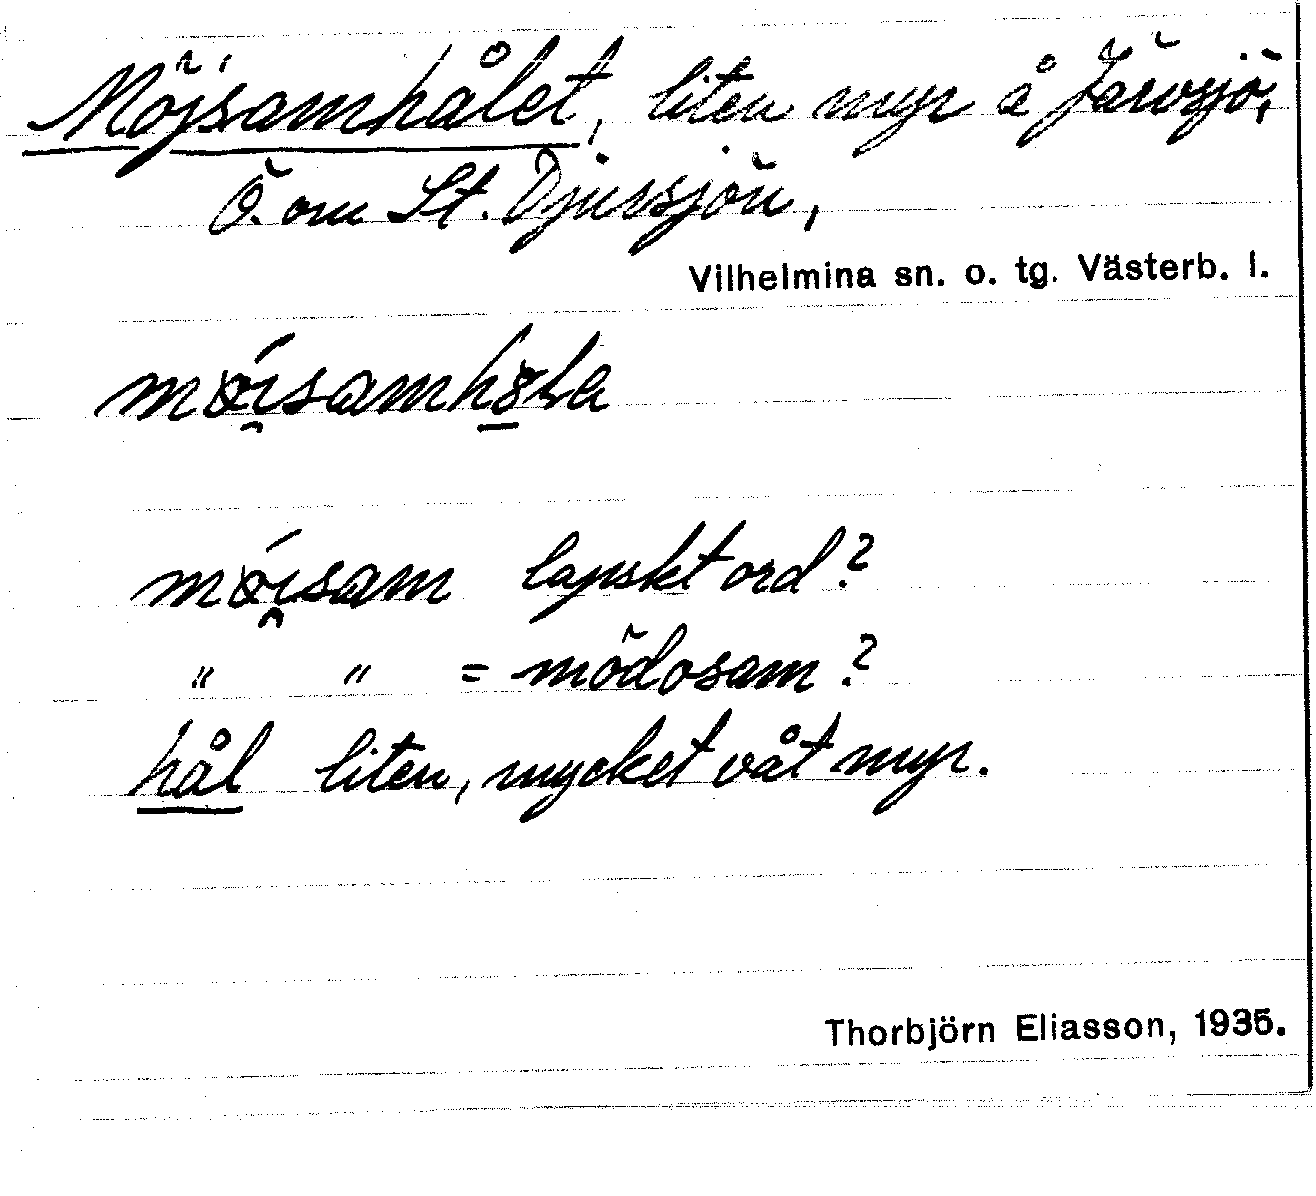 Möjsamhålet, liten myr å Järvsjö,
Ö. om St. Djursjön,
Vilhelmina sn. o. tg. Västerb. l.

möjsam lapskt ord?
" " = mödosam?
hål liten, mycket våt myr.
Thorbjörn Eliasson, 1935.